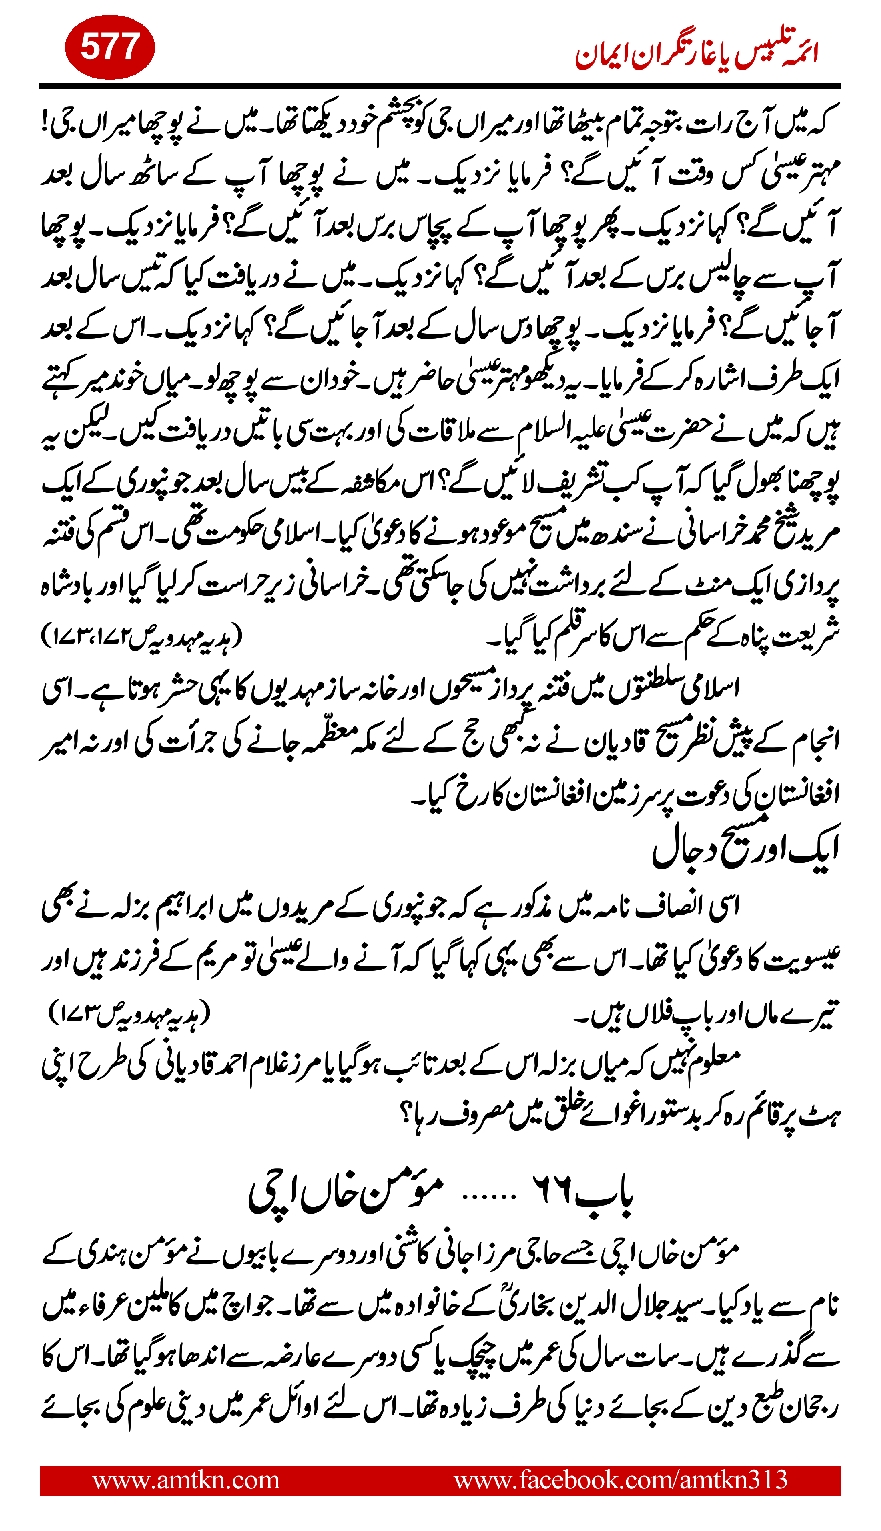 577
ائمہ تلبیس یا غارتگران ایمان
کہ میں آج رات بتوجہ تمام بیٹھا تھا اور میراں جی کو بچشم خود دیکھتا تھا۔ میں نے پوچھا میراں جی!
مہتر عیسیٰ کس وقت آئیں گے؟ فرمایا نزدیک۔ میں نے پوچھا آپ کے ساٹھ سال بعد
آئیں گے؟ کہا نزدیک۔ پھر پوچھا آپ کے پچاس برس بعد آئیں گے؟ فرمایا نزدیک۔ پوچھا
آپ سے چالیس برس کے بعد آئیں گے؟ کہا نزدیک۔ میں نے دریافت کیا کہ تیس سال بعد
آ جائیں گے؟ فرمایا نزدیک۔ پوچھا دس سال کے بعد آ جائیں گے؟ کہا نزدیک۔ اس کے بعد
ایک طرف اشارہ کر کے فرمایا۔ یہ دیکھو مہتر عیسیٰ حاضر ہیں۔ خود ان سے پوچھ لو۔ میاں خوند میر کہتے
ہیں کہ میں نے حضرت عیسیٰ علیہ السلام سے ملاقات کی اور بہت سی باتیں دریافت کیں۔ لیکن یہ
پوچھنا بھول گیا کہ آپ کب تشریف لائیں گے؟ اس مکاشفہ کے بیس سال بعد جونپوری کے ایک
مرید شیخ محمد خراسانی نے سندھ میں مسیح موعود ہونے کا دعویٰ کیا۔ اسلامی حکومت تھی۔ اس قسم کی فتنہ
پردازی ایک منٹ کے لئے برداشت نہیں کی جاسکتی تھی۔ خراسانی زیر حراست کر لیا گیا اور بادشاہ
شریعت پناہ کے حکم سے اس کا سر قلم کیا گیا۔ (ہدیہ مہدویہ ص۱۷۲،۱۷۳)
اسلامی سلطنتوں میں فتنہ پرداز مسیحوں اور خانہ ساز مہدیوں کا یہی حشر ہوتا ہے۔ اسی
انجام کے پیش نظر مسیح قادیان نے نہ کبھی حج کے لئے مکہ معظّمہ جانے کی جرأت کی اور نہ امیر
افغانستان کی دعوت پر سرزمین افغانستان کا رخ کیا۔
ایک اور مسیح دجال
اسی انصاف نامہ میں مذکور ہے کہ جونپوری کے مریدوں میں ابراہیم بزلہ نے بھی
عیسویت کا دعویٰ کیا تھا۔ اس سے بھی یہی کہا گیا کہ آنے والے عیسیٰ تو مریم کے فرزند ہیں اور
تیرے ماں اور باپ فلاں ہیں۔ (ہدیہ مہدویہ ص۱۷۳)
معلوم نہیں کہ میاں بزلہ اس کے بعد تائب ہو گیا یا مرزا غلام احمد قادیانی کی طرح اپنی
ہٹ پر قائم رہ کر بدستور اغوائے خلق میں مصروف رہا؟
باب ۶۶ ...... مؤمن خاں اچی
مؤمن خاں اچی جسے حاجی مرزا جانی کاشنی اور دوسرے بابیوں نے مؤمن ہندی کے
نام سے یاد کیا۔ سید جلال الدین بخاریؒ کے خانوادہ میں سے تھا۔ جو اچ میں کاملین عرفاء میں
سے گذرے ہیں۔ سات سال کی عمر میں چیچک یا کسی دوسرے عارضہ سے اندھا ہو گیا تھا۔ اس کا
رجحان طبع دین کے بجائے دنیا کی طرف زیادہ تھا۔ اس لئے اوائل عمر میں دینی علوم کی بجائے
www.amtkn.com www.facebook.com/amtkn313